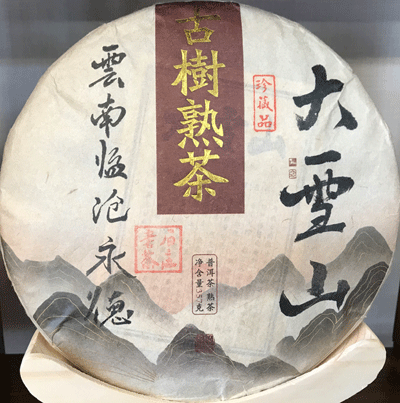 大雪山
珍藏品
古樹熟茶
普洱茶 熟茶
净含量357克
雲南臨沧永德